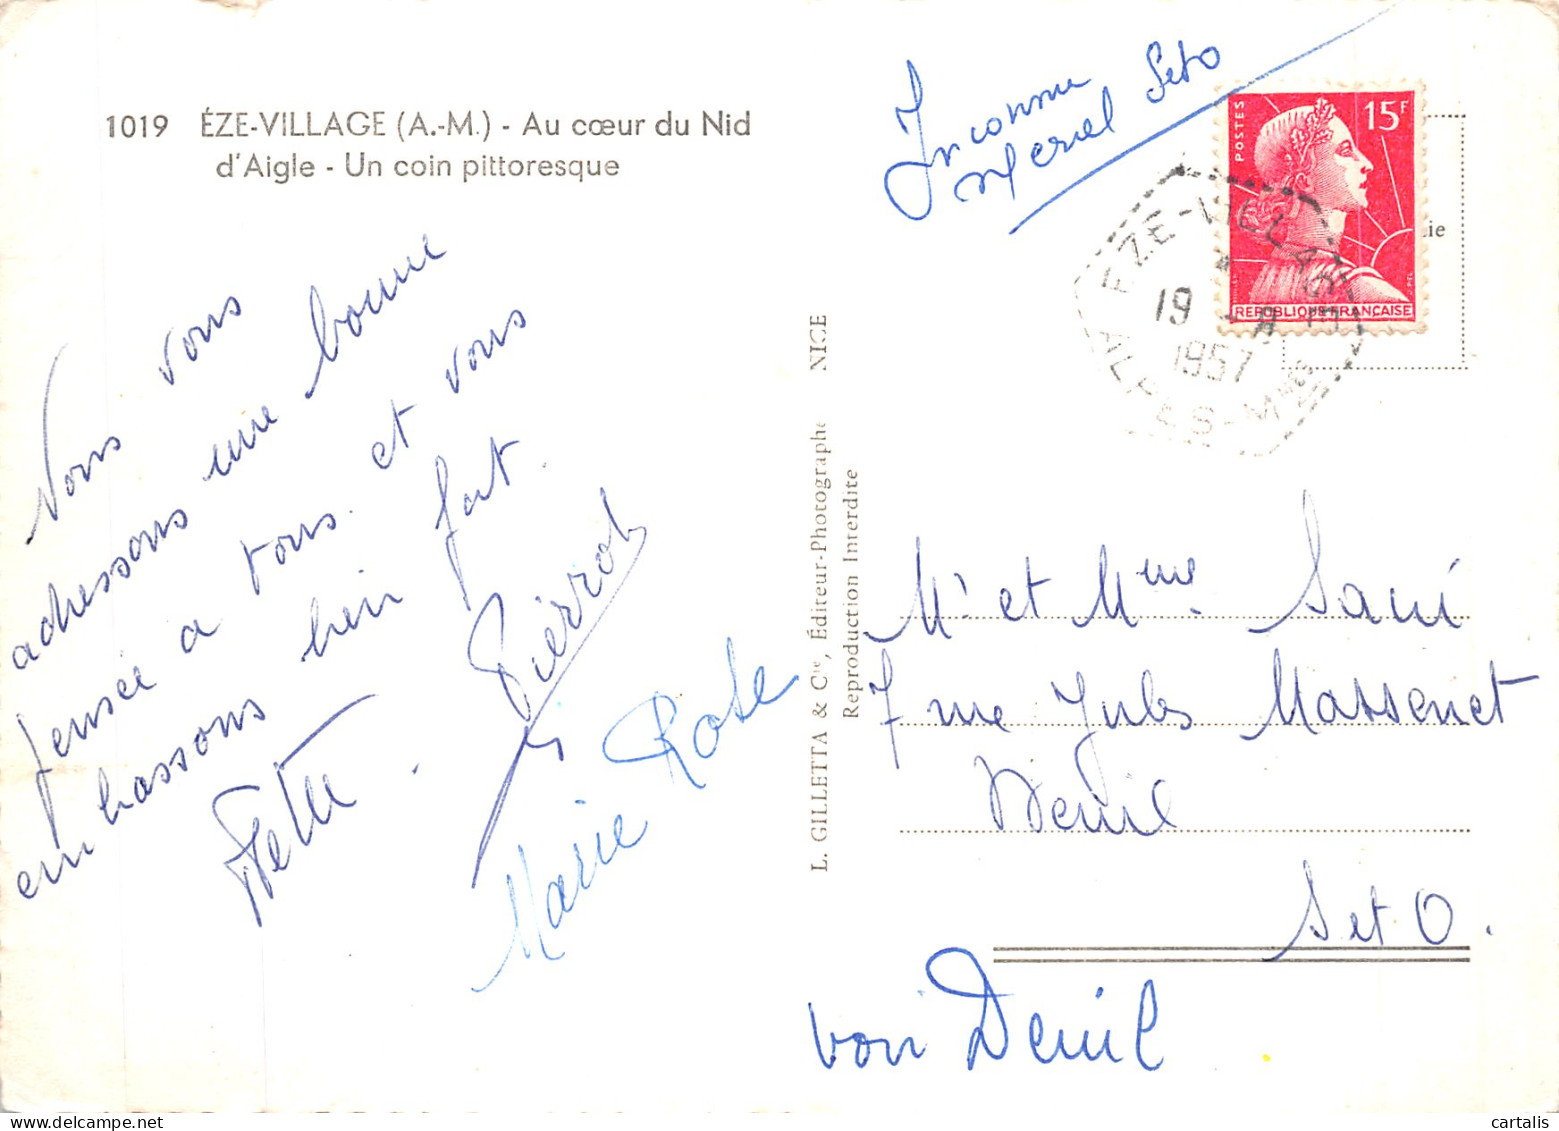 1019 ÉZE-VILLAGE (A.-M.) - Au cœur du Nid
d'Aigle - Un coin pittoresque
Nous vous
adressons une bonne
pensée a vous et vous
embrassons bien fort.
Pierrot
Marie Rose
L. GILLETTA & Cie, Éditeur-Photographe NICE
Reproduction Interdite
Inconnu
Seto
POSTES
15F
REPUBLIQUE FRANÇAISE
EZE-VILLAGE
19 - 8
1957
ALPES-Mmes
ie
Mr et Mme Sani
7 rue Jules Massenet
Deuil
S et O.
voir Deuil
cartalis